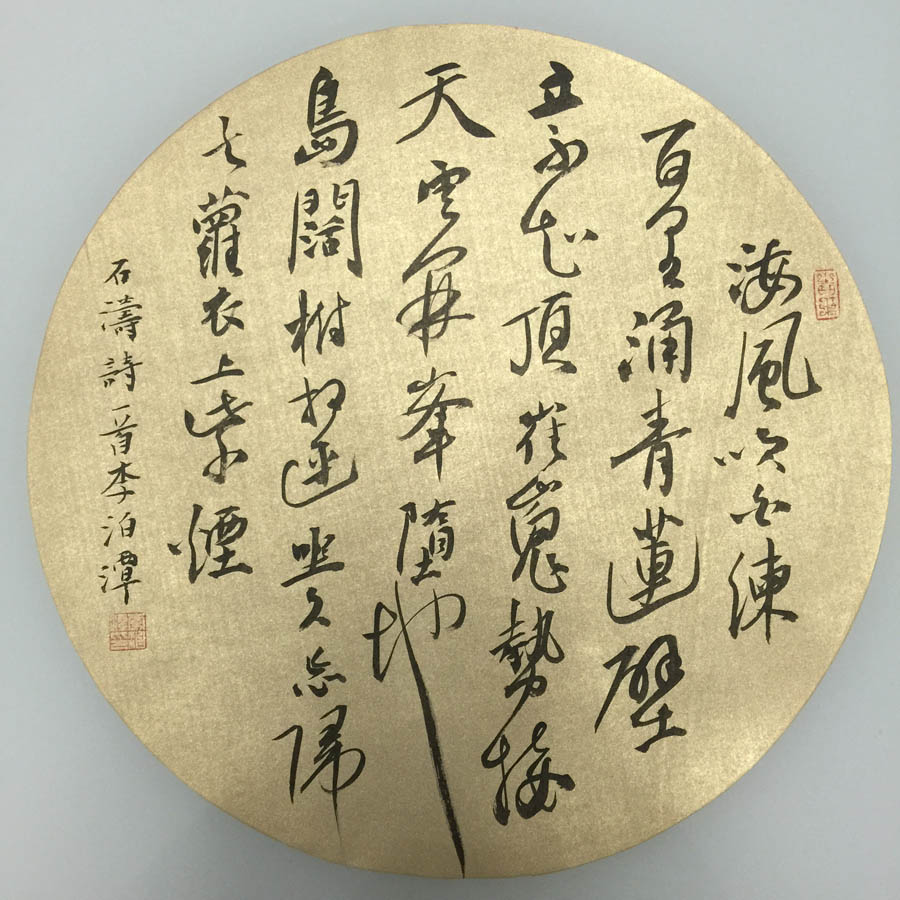 海風吹白練
百里涌青蓮壁
立不知頂崔嵬勢接
天雲開峯墮地
島闊樹相連坐久忘歸
去蘿衣上紫煙
石濤詩一首李泊潭